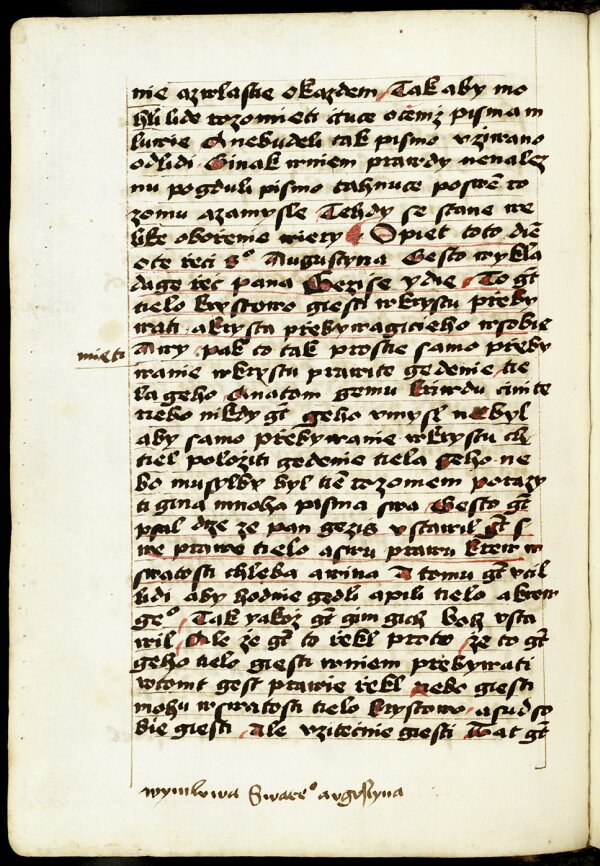 nie azwlastie okazdem Tak aby mo
hli lide rozomieti čtuce oťemž pisma m
luwie A nebudeli tak pismo vžiwano
odlidi Ginak wniem prawdy nenalez
nu pogduli pismo tahnuce poswē ro
zomu azamysle Tehdy se stane we
like obořenie wiery Opiet toto diē
ote řeči Sº Augustyna Gesto wykla
dage řeč pana Gezise ydie To gt̄
tielo krystowo giesti wkrystu přeby
wati a krysta přebywagicieho wsobie
mieti
Awy pak to tak prostie samo přeby
wanie wkrystu prawite gedenie tie
la geho Anatom gemu křiwdu činite
nebo nikdy gt̄ geho vmysl nebyl
aby samo přebywanie wkrystu ch
tiel položiti gedenie tiela geho ne
bo musylby byl tiē rozomem porazy
ti gina mnoha pisma swa Gesto gt̄
psal drže že pan gezis vstawil gt̄ s
we prawe tielo aswu prawu krew w
swatosti chleba awina A tomu gt̄ včil
lidi aby hodnie gedli apili tielo akrew
geº Tak yakož gt̄ gim gich Boh vsta
wil Ale že gt̄ to řekl proto že to gt̄
geho tielo giesti wniem přebywati
wtomt gest prawie řekl nebo giesti
mohu wswatosti tielo krystowo asudso
bie giesti Ale vžitečnie giesti Wat gt̄
wymluwa Swateº augustyna